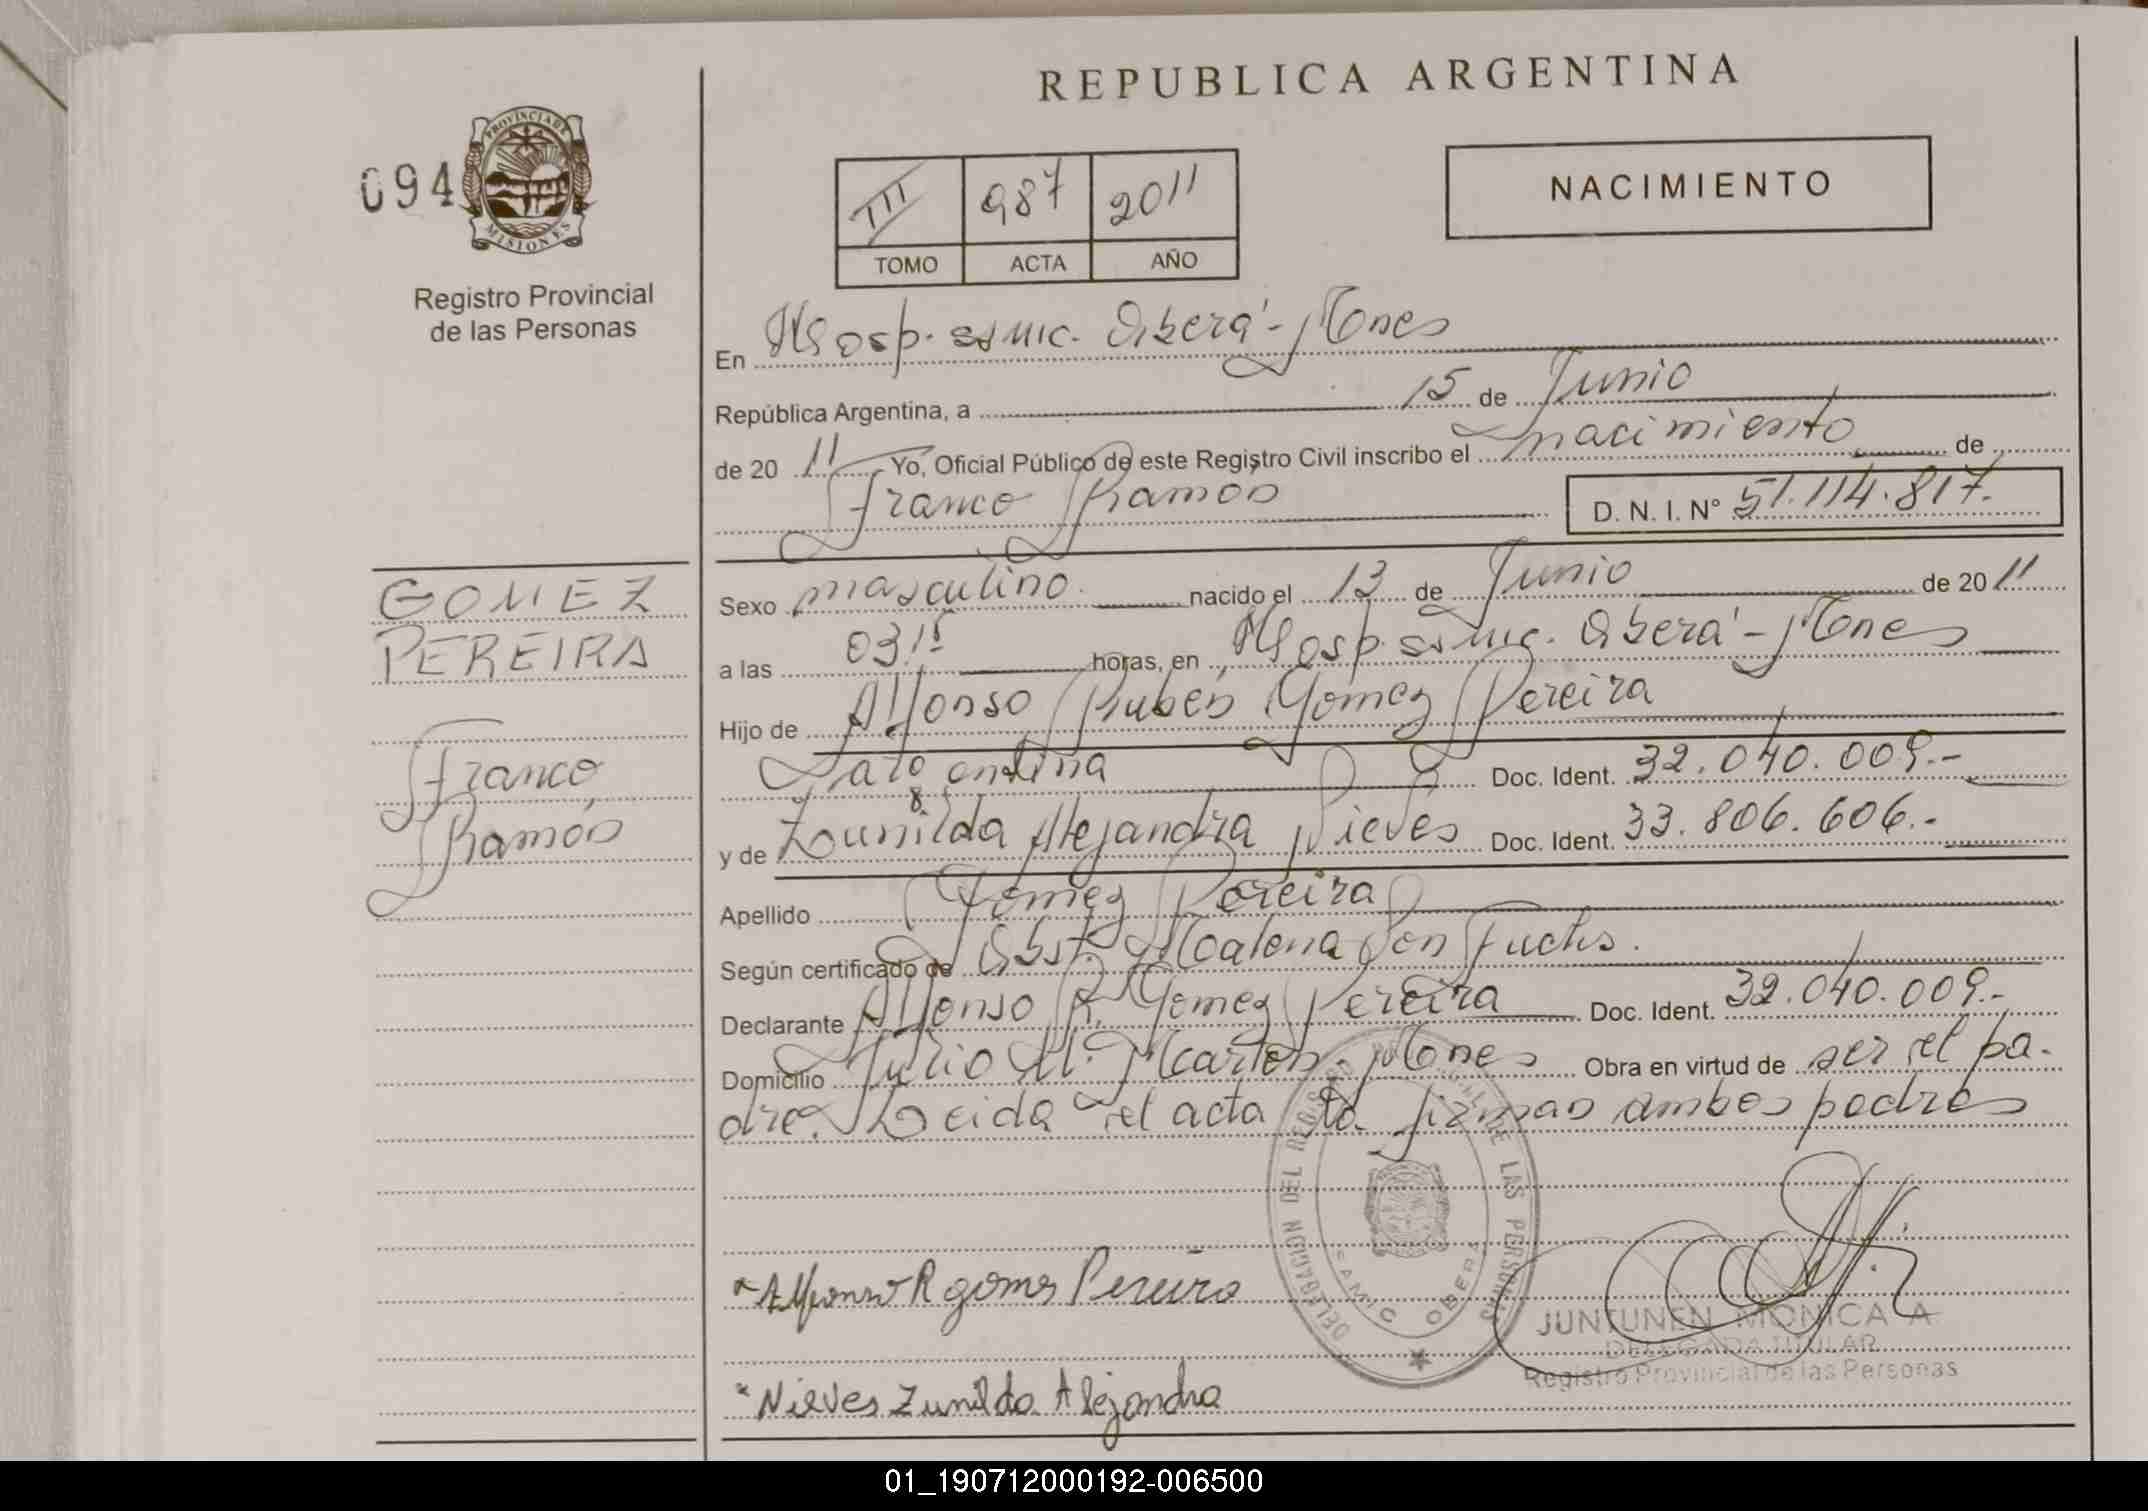 REPUBLICA ARGENTINA
094
PROVINCIA DE
MISIONES
Registro Provincial
de las Personas
III 987 2011
TOMO ACTA AÑO
NACIMIENTO
En Hosp. Oberá - Mones
República Argentina, a 15 de Junio
de 20 11 Yo, Oficial Público de este Registro Civil inscribo el nacimiento de
Franco Ramón
D. N. I. N° 51.114.817.
GOMEZ
PEREIRA
Franco
Ramón
Sexo masculino nacido el 13 de Junio de 20 11
a las 03.15 horas, en Hosp. Oberá - Mones
Hijo de Alfonso Rubén Gomez Pereira
Argentina Doc. Ident. 32.040.009.-
y de Zunilda Alejandra Nieves Doc. Ident. 33.806.606.-
Apellido Gomez Pereira
Según certificado de Obst. Malena Von Fuchs.
Declarante Alfonso R. Gomez Pereira Doc. Ident. 32.040.009.-
Domicilio Julio U. Martos. Mones Obra en virtud de ser el pa-
dre. Leida el acta la firman ambos padres
DELEGACION DEL REGISTRO DE LAS PERSONAS
OBERA
*Alfonso R gomes Pereira
JUNTUNEN MONICA A
DELEGADA TITULAR
Registro Provincial de las Personas
*Nieves Zunilda Alejandra
01_190712000192-006500